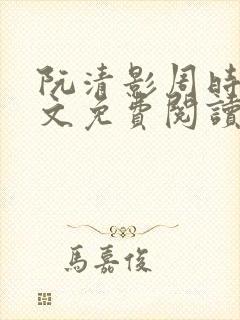 阮清影周時
文免費閱讀
馬嘉俊